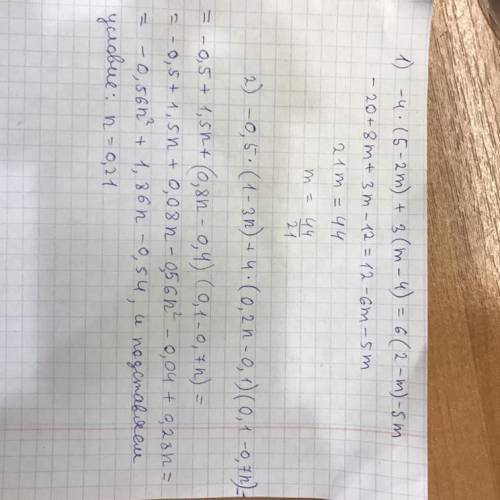 1) -4·(5-2m)+3(m-4)=6(2-m)-5m
-20+8m+3m-12=12-6m-5m
21m=44
m=44/21
2) -0,5·(1-3n)+4·(0,2n-0,1)(0,1-0,7n)=
=-0,5+1,5n+(0,8n-0,4)(0,1-0,7n)=
=-0,5+1,5n+0,08n-0,56n²-0,04+0,28n=
=-0,56n²+1,86n-0,54, и подставляем
условие: n=0,21